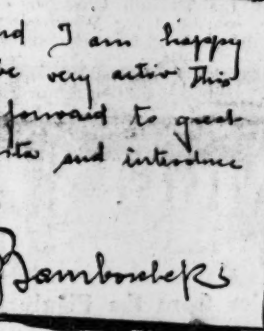 nd I am happy
be very activ this
forward to great
ita and introduce